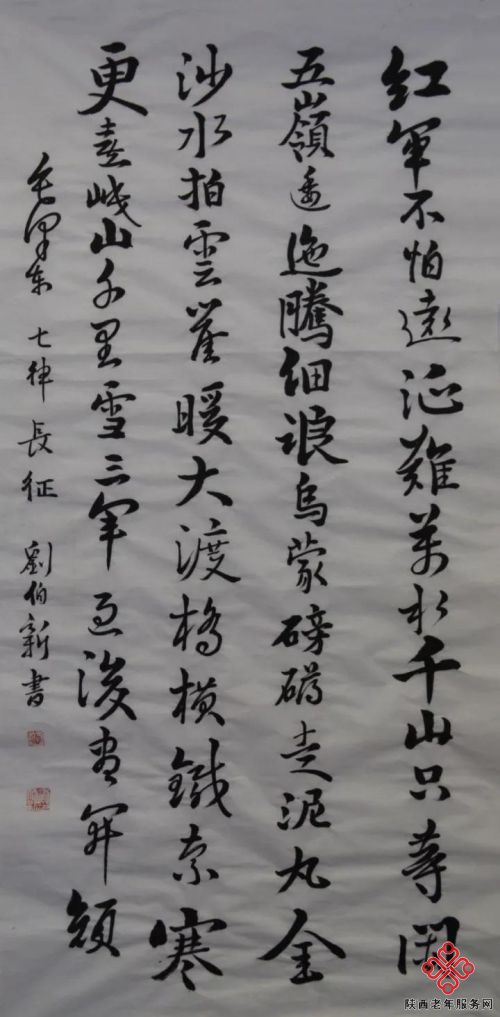 紅軍不怕遠征難萬水千山只等閑
五嶺逶迤騰細浪烏蒙磅礴走泥丸金
沙水拍雲崖暖大渡橋橫鐵索寒
更喜岷山千里雪三軍過後盡開顏
毛澤東 七律 長征 劉伯新書
陕西老年服务网